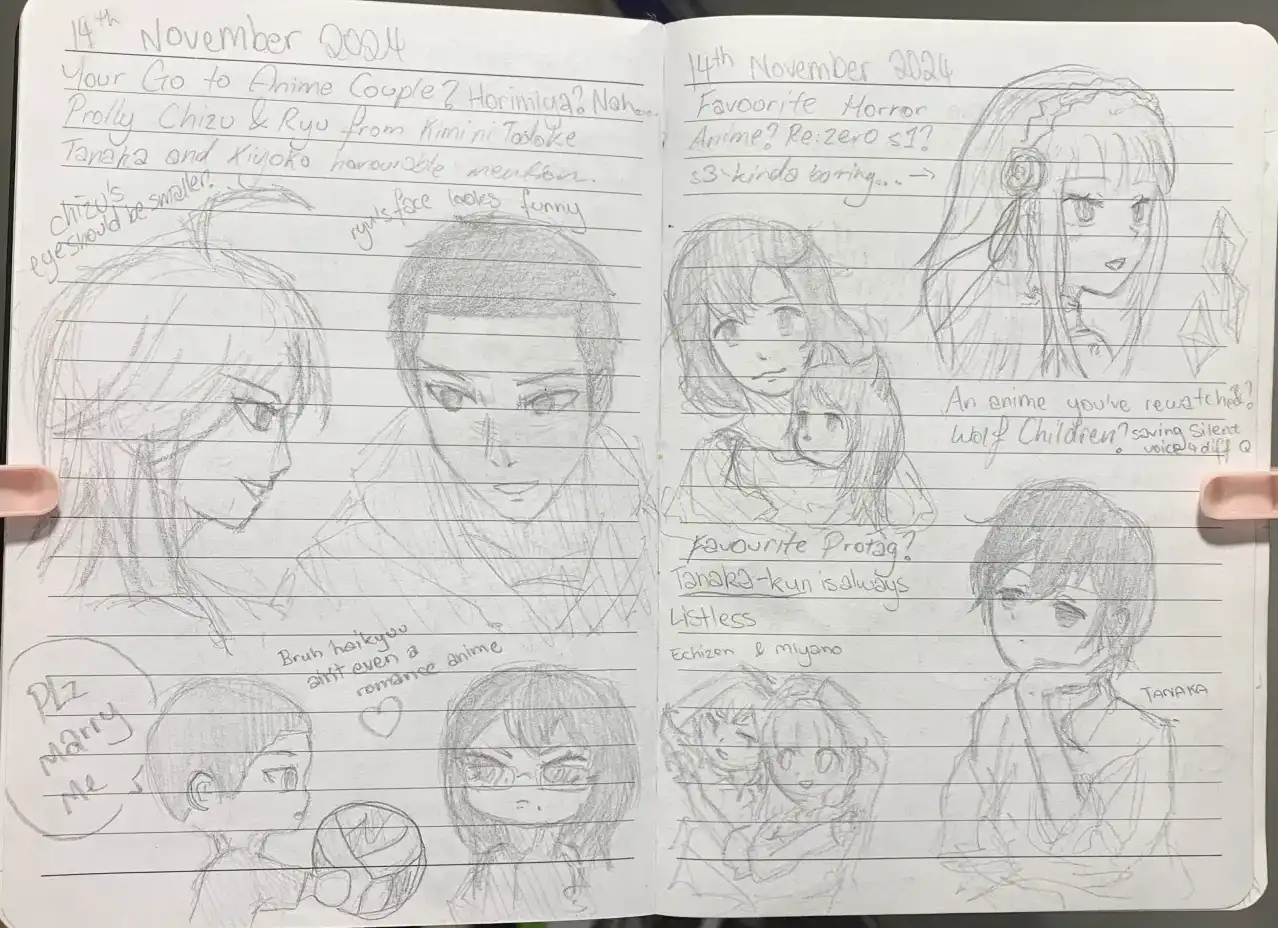 14th November 2024
Your Go to Anime Couple? Horimiya? Nah...
Prolly Chizu & Ryu from Kimi ni Todoke
Tanaka and Kiyoko honourable mention.
chizu's
eye should be smaller.
ryu's face looks funny
Bruh haikyuu
ain't even a
romance anime
Plz
Marry
Me
14th November 2024
Favourite Horror
Anime? Re:zero s1?
s3 kinda boring... →
An anime you've rewatched?
Wolf Children? saving Silent
voice 4 diff Q
Favourite Protag?
Tanaka-kun is always
Listless
Echizen & Miyano
TANAKA